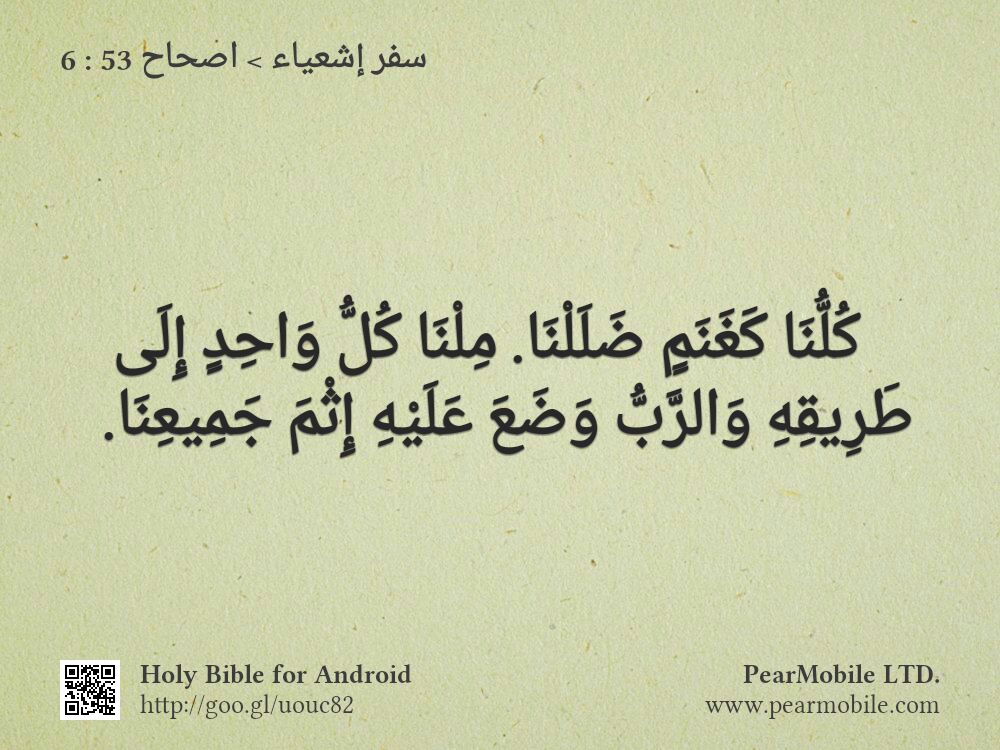 سفر إشعياء > اصحاح 53 : 6
كُلُّنَا كَغَنَمٍ ضَلَلْنَا. مِلْنَا كُلُّ وَاحِدٍ إِلَى
طَرِيقِهِ وَالرَّبُّ وَضَعَ عَلَيْهِ إِثْمَ جَمِيعِنَا.
Holy Bible for Android
http://goo.gl/uouc82
PearMobile LTD.
www.pearmobile.com